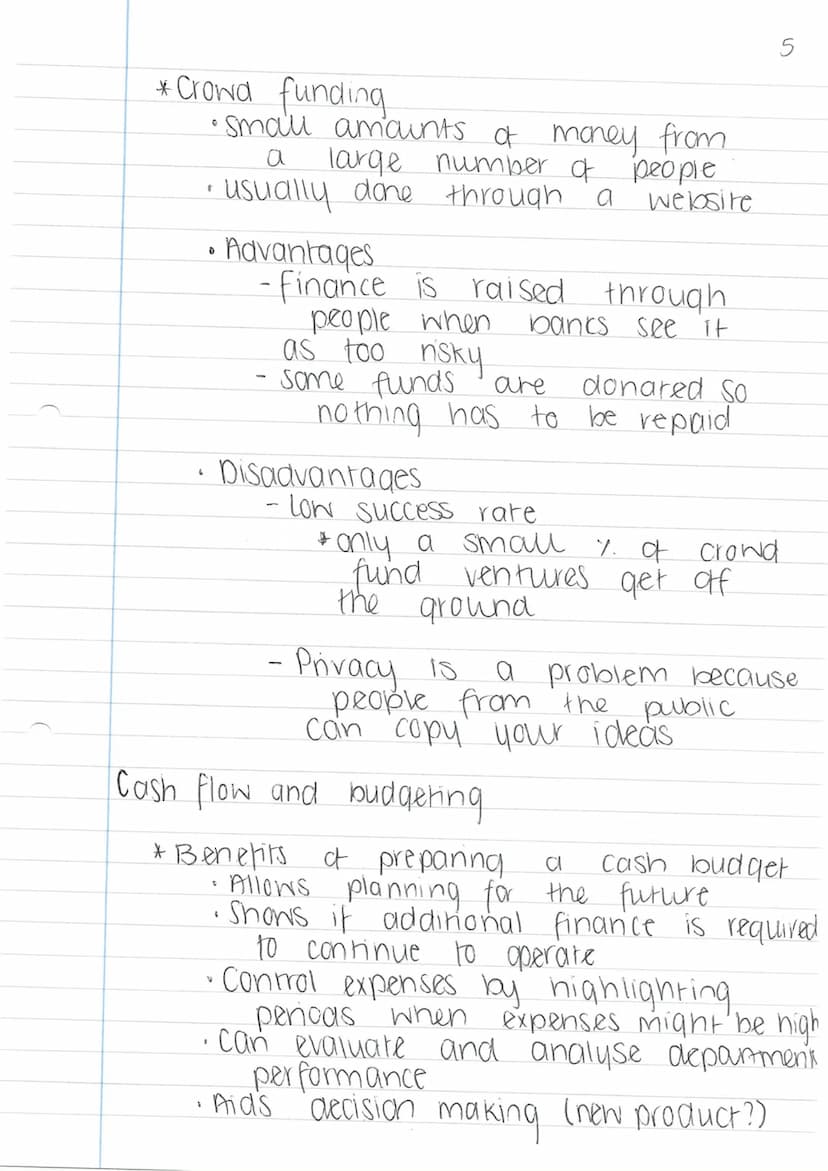 5
* Crowd funding
• small amounts of money from
a large number of people
• usually done through a website
• Advantages
- finance is raised through
people when banks see it
as too risky
- some funds are donated so
nothing has to be repaid
• Disadvantages
- low success rate
* only a small % of crowd
fund ventures get off
the ground
- Privacy is a problem because
people from the public
can copy your ideas
Cash flow and budgeting
* Benefits of preparing a cash budget
• Allows planning for the future
• Shows if additional finance is required
to continue to operate
• Control expenses by highlighting
periods when expenses might be high
• Can evaluate and analyse department
performance
• Aids decision making (new product?)